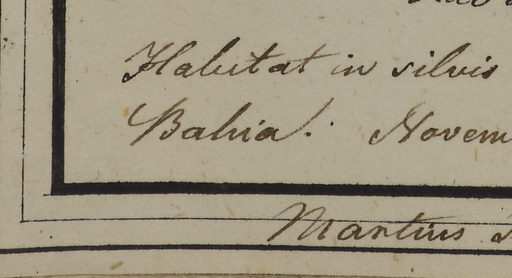 Habitat in silvis
Bahia. Novem
Martius